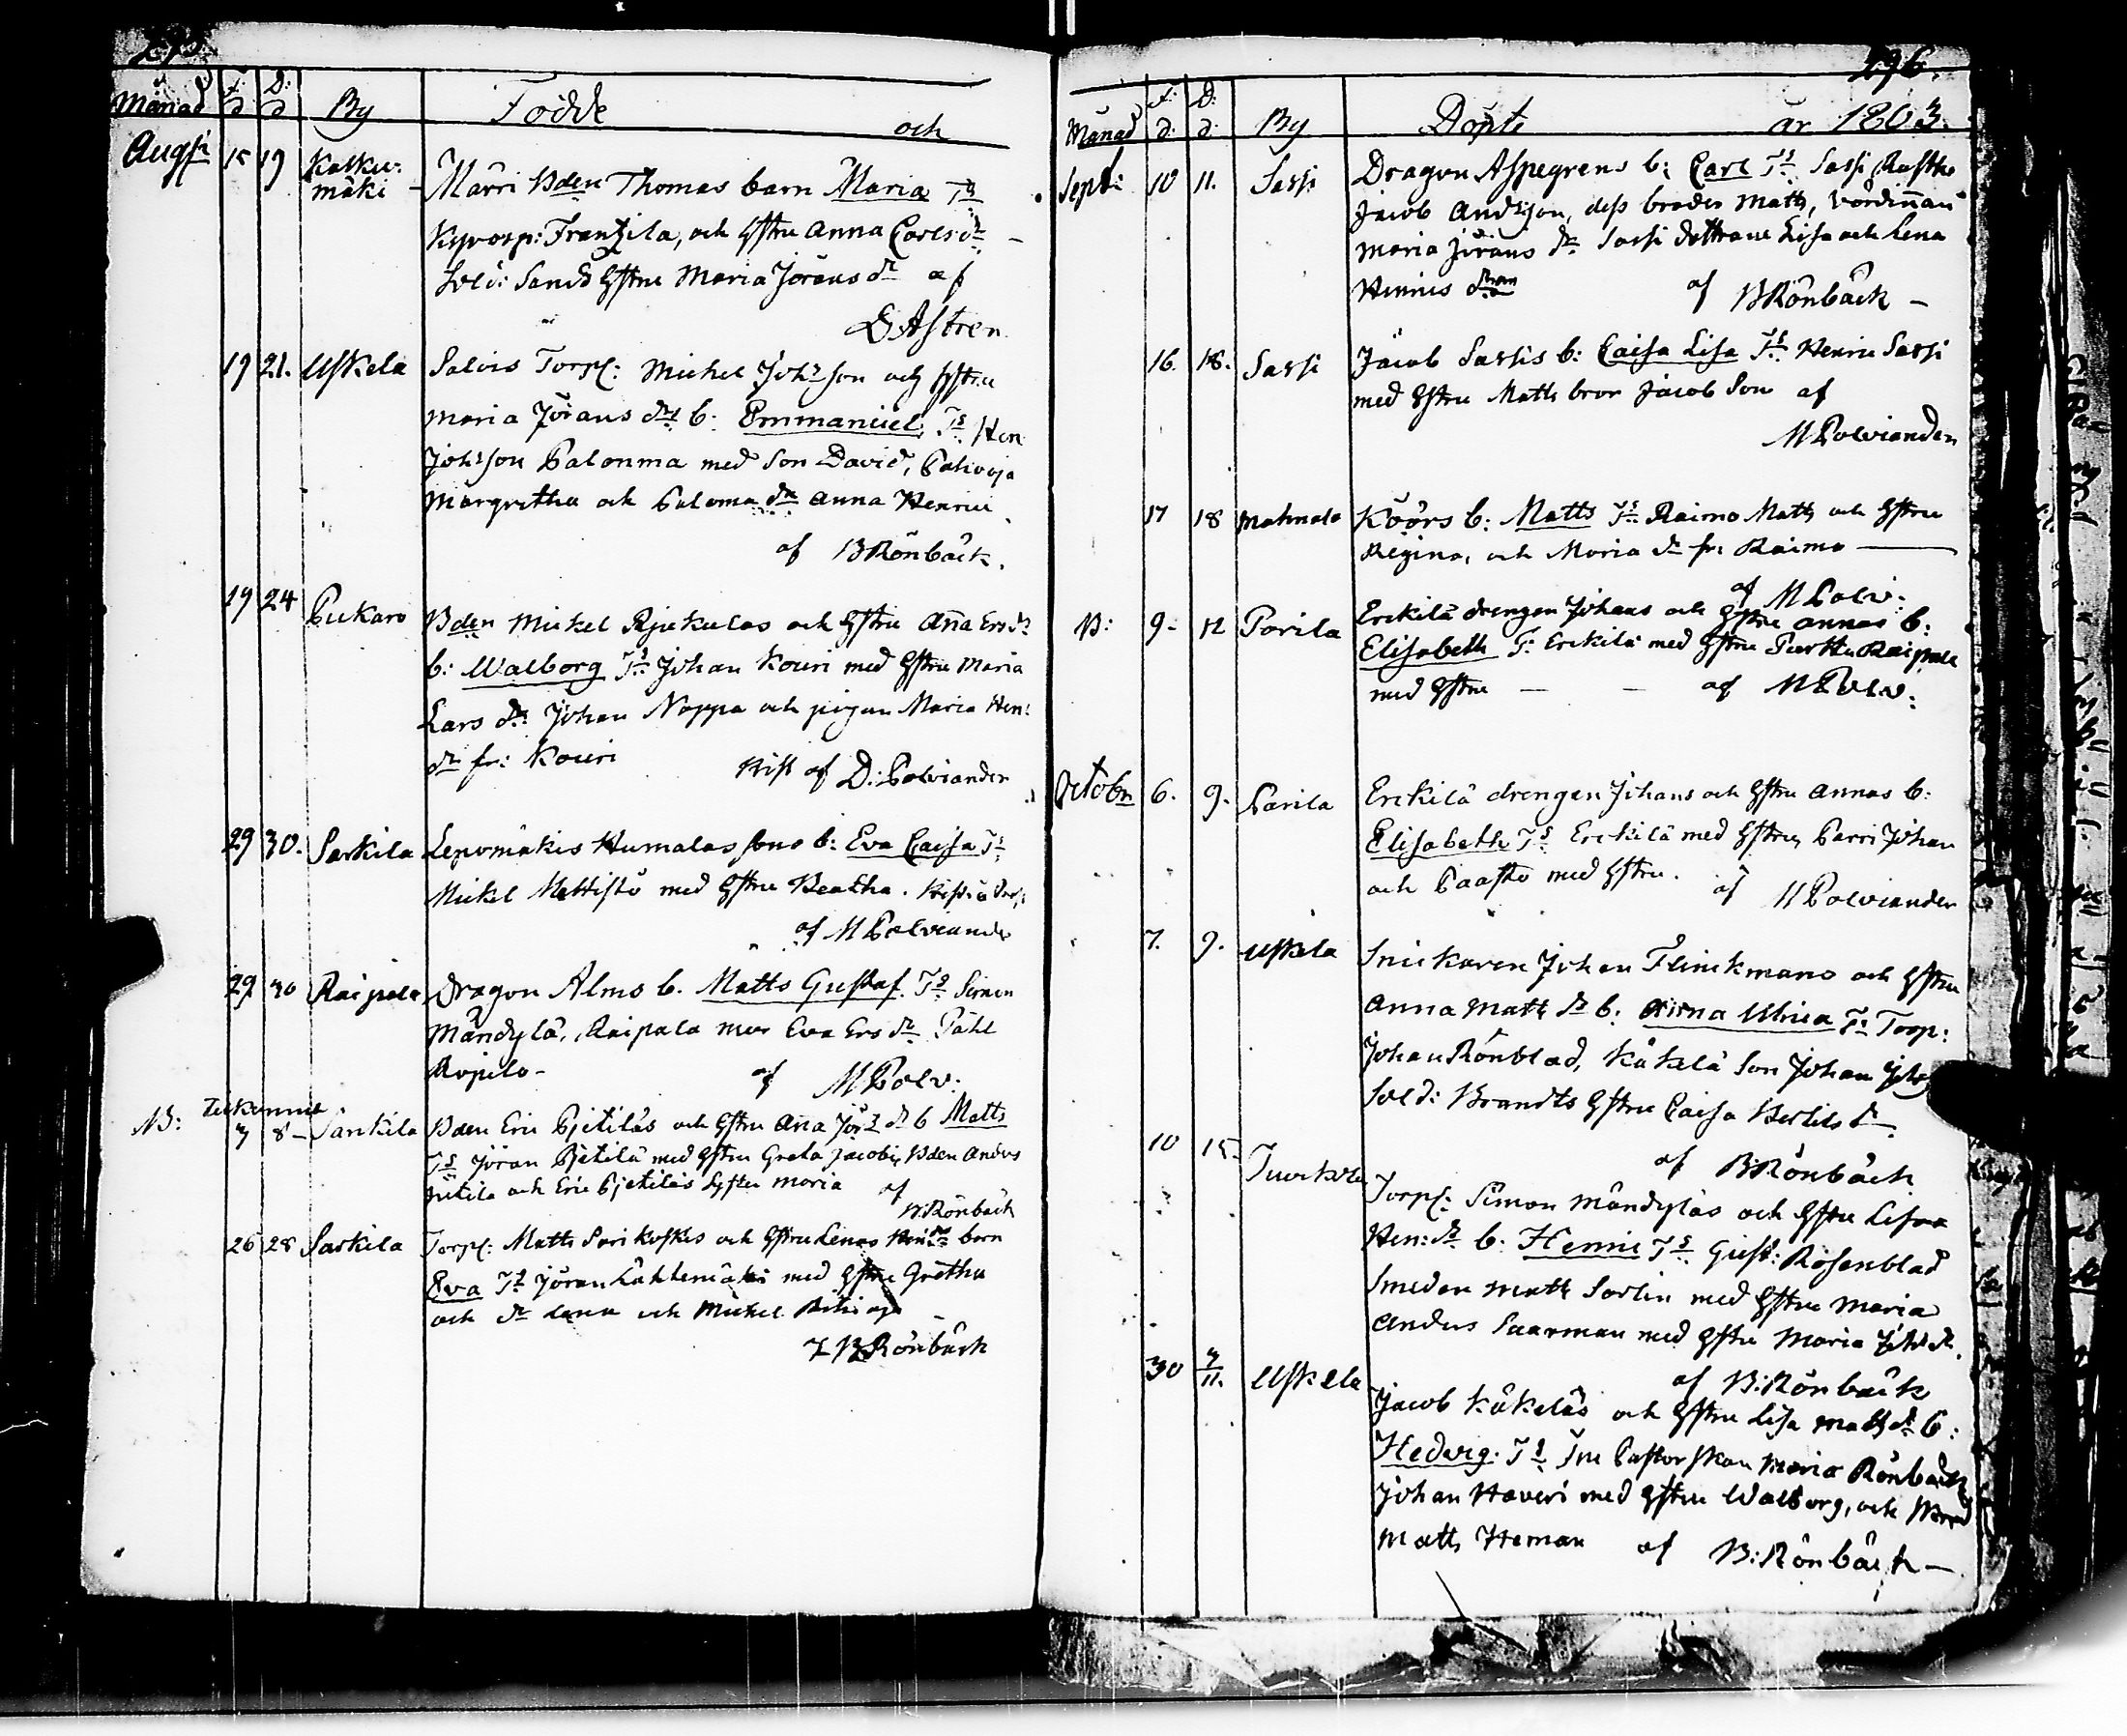 Månad f: d D: d By Födde och
Augsti 15 19 Kalku:
mäki
Märri Bden Thomas barn Maria Ts
Kyrosp: Frantzila, och hstru Anna Carls dr
Sold: Sands hstru Maria Jörans dr af
D Astren
19 21. Uskela Salois Torp: Michel Johsson och hstru
Maria Jörans drs b. Emmanuel Ts Hen
Johsson Palonma med Son David,
Margretha och Paloma dr Anna Henric
af B Rönbäck.
19 24 Pukaro Bden Mickel och hstru Aña Ers dr
b: Walborg Ts Johan Kouri med hstru Maria
Lars dr Johan Noppa och pigan Maria Hen:
dr fr: Kouri af D: Polviander
29 30. Sarkila Lepomäkis Humalas sons b: Eva Caisa Ts
Mickel Mattisto med hstru Beatha.
af M Polviander
29 30 Raipala Dragon Alms b. Matts Gustaf. Ts Simon
Mändylä, Raipala mor Eva Ers dr Påhl
Ropilo- af M Polv:
N: 7 8- Sarkila Bden Eric Pjetiläs och hstru Ana Jör dr b Matts
Ts Jöran Pjetilä med hstru Greta Jacobs, Bden Anders
och Eric Pjetiläs Syster Maria af
B Rönbäck
26 28 Sarkila Torp: Matts och hstru Lenas Hen dr barn
Eva Ts Jöran Lähtemäki med hstru Gretha
och dr Lena och Mickel
B Rönbäck
296.
Månad f: d: D: d: By Döpte år 1803.
Septb: 10 11. Sassi Dragon Aspegrens b: Carl Ts Sassi
Jacob Andsson, dess broder Matts, Värdinnan
Maria Jörans dr Sassi döttrane Lisa och Lena
Henrics af B Rönbäck -
16. 18. Sassi Jacob Sassis b: Caisa Lisa Ts Henric Sassi
med hstru Matts bror Jacob Son af
M Polviander
17 18 Mahnala Köörs b: Matts Ts Raimo Matts och hstru
Regina, och Maria dr fr: Raimo
af M Polv:
N: 9- 12 Porila Erckilä drengen Johans och hstru Annas b:
Elisabeth T: Erckilä med hstru Raipala
med hstru - - af M Polv:
Octobr 6. 9. Parila Erckilä drengen Johans och hstru Annas b:
Elisabeth Ts Erckilä med hstru, Parri Johan
och Paasto med hstru. af M Polviander
7. 9. Uskela Snickaren Johan Flinckmans och hstru
Anna Matts dr b: Anna Ulrica Ts Torp:
Johan Rönblad, Käkelä Son Johan
Sold: Brandts hstru Caisa Bertils dr
af B: Rönbäck
10 15- Torp: Simon Mändyläs och hstru Lisas
Hen: dr b: Henric Ts Gust: Rosenblad
Smeden Matts Sorlin med hstru Maria
Anders Saarman med hstru Maria Joh dr.
af B: Rönbäck
30 3/11. Uskela Jacob Käkeläs och hstru Lisa Matts dr b:
Hedvig. Ts Fru Pastorskan Maria Rönbäck
Johan Haveri med hstru Walborg, och
Matts Heman af B: Rönbäck -